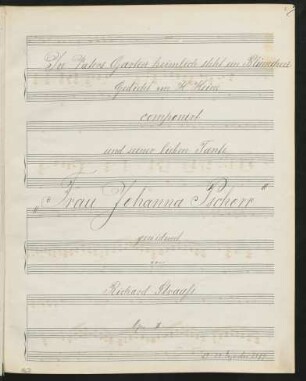 Im Vaters Garten heimlich steht ein Blümchen
Gedicht von H. Heine
componirt
und seiner lieben Tante
„Frau Johanna Pschorr"
gewidmet
von
Richard Strauss